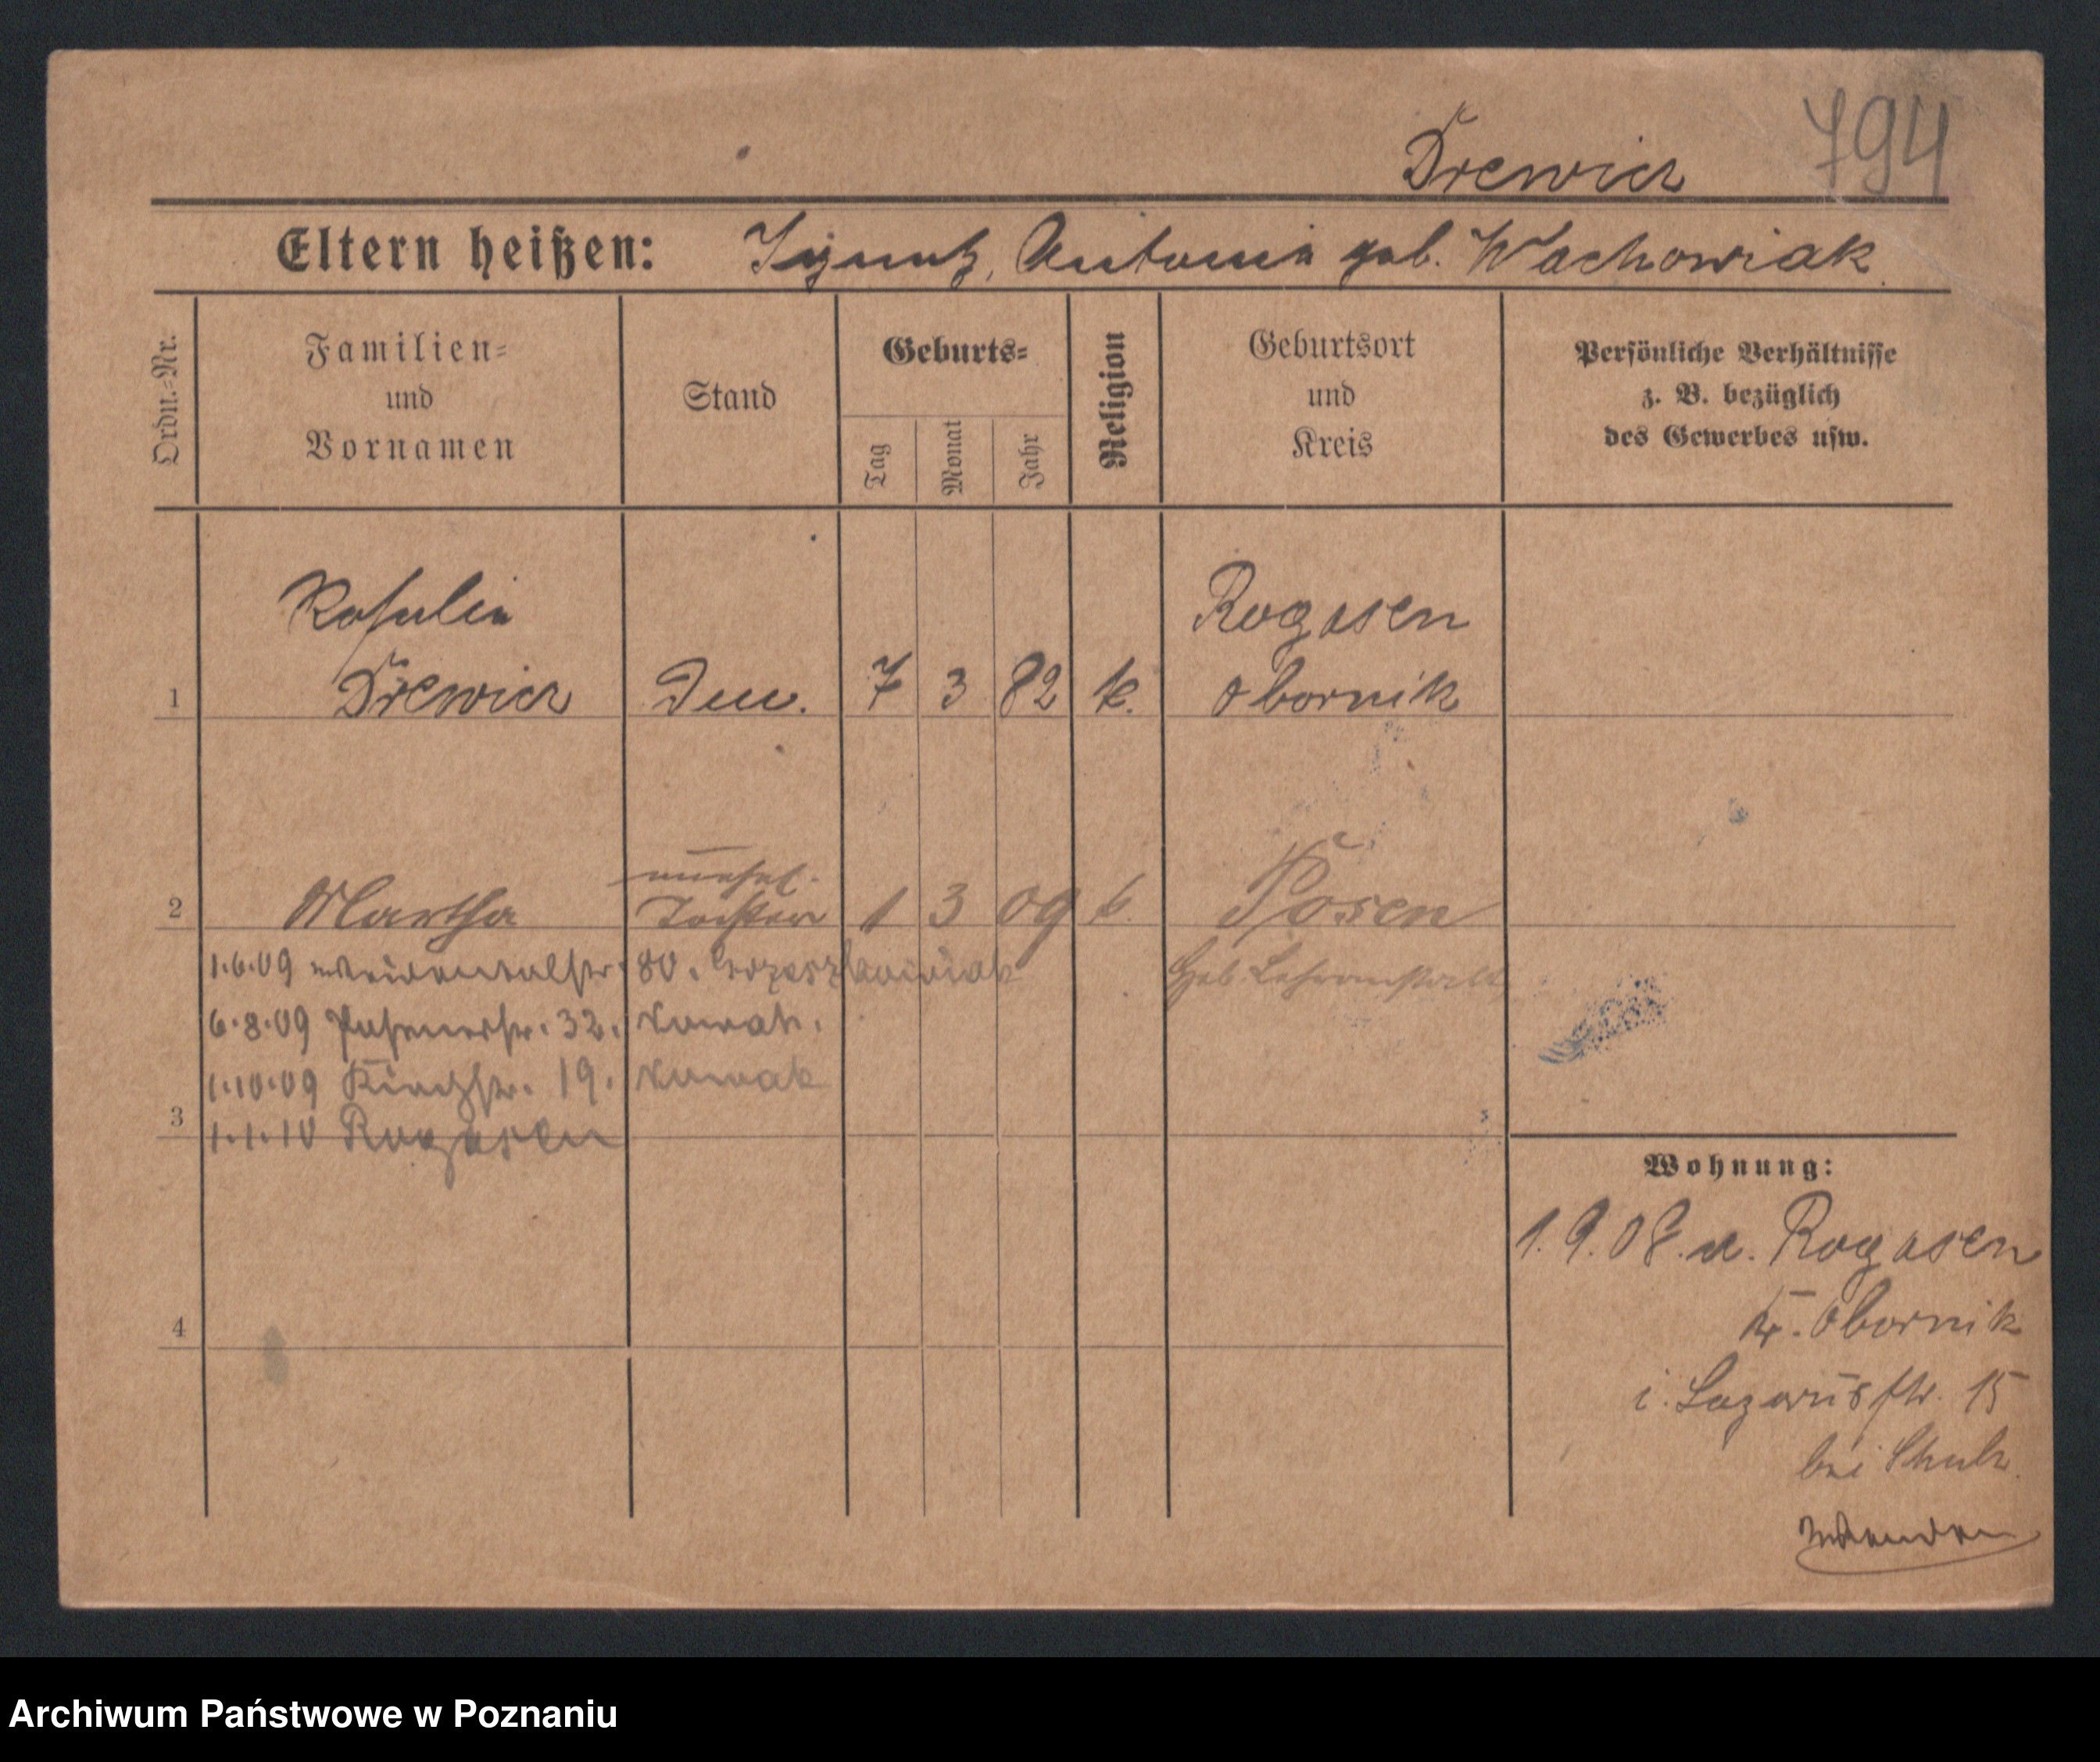 794
Drewicz
Eltern heißen: Ignatz, Antonia geb. Wachowiak
Ordn.=Nr.
Familien=
und
Vornamen
Stand
Geburts=
Tag
Monat
Jahr
Religion
Geburtsort
und
Kreis
Persönliche Verhältnisse
z. B. bezüglich
des Gewerbes usw.
Rosalia Rogasen
1 Drewicz 7 3 82 k. Obornik
unehel.
2 Martha Tochter 1 3 09 k. Posen
1.6.09 80. Heb. Lehranstalt
6.8.09 Posenerstr. 32. Nowak.
1.10.09 Kirchstr. 19. Nowak
3
1.1.10 Rogasen
Wohnung:
1.9.08. a. Rogasen
4
Kr. Obornik
i. Lazarusstr. 15
bei Schulz
Wenden
Archiwum Państwowe w Poznaniu